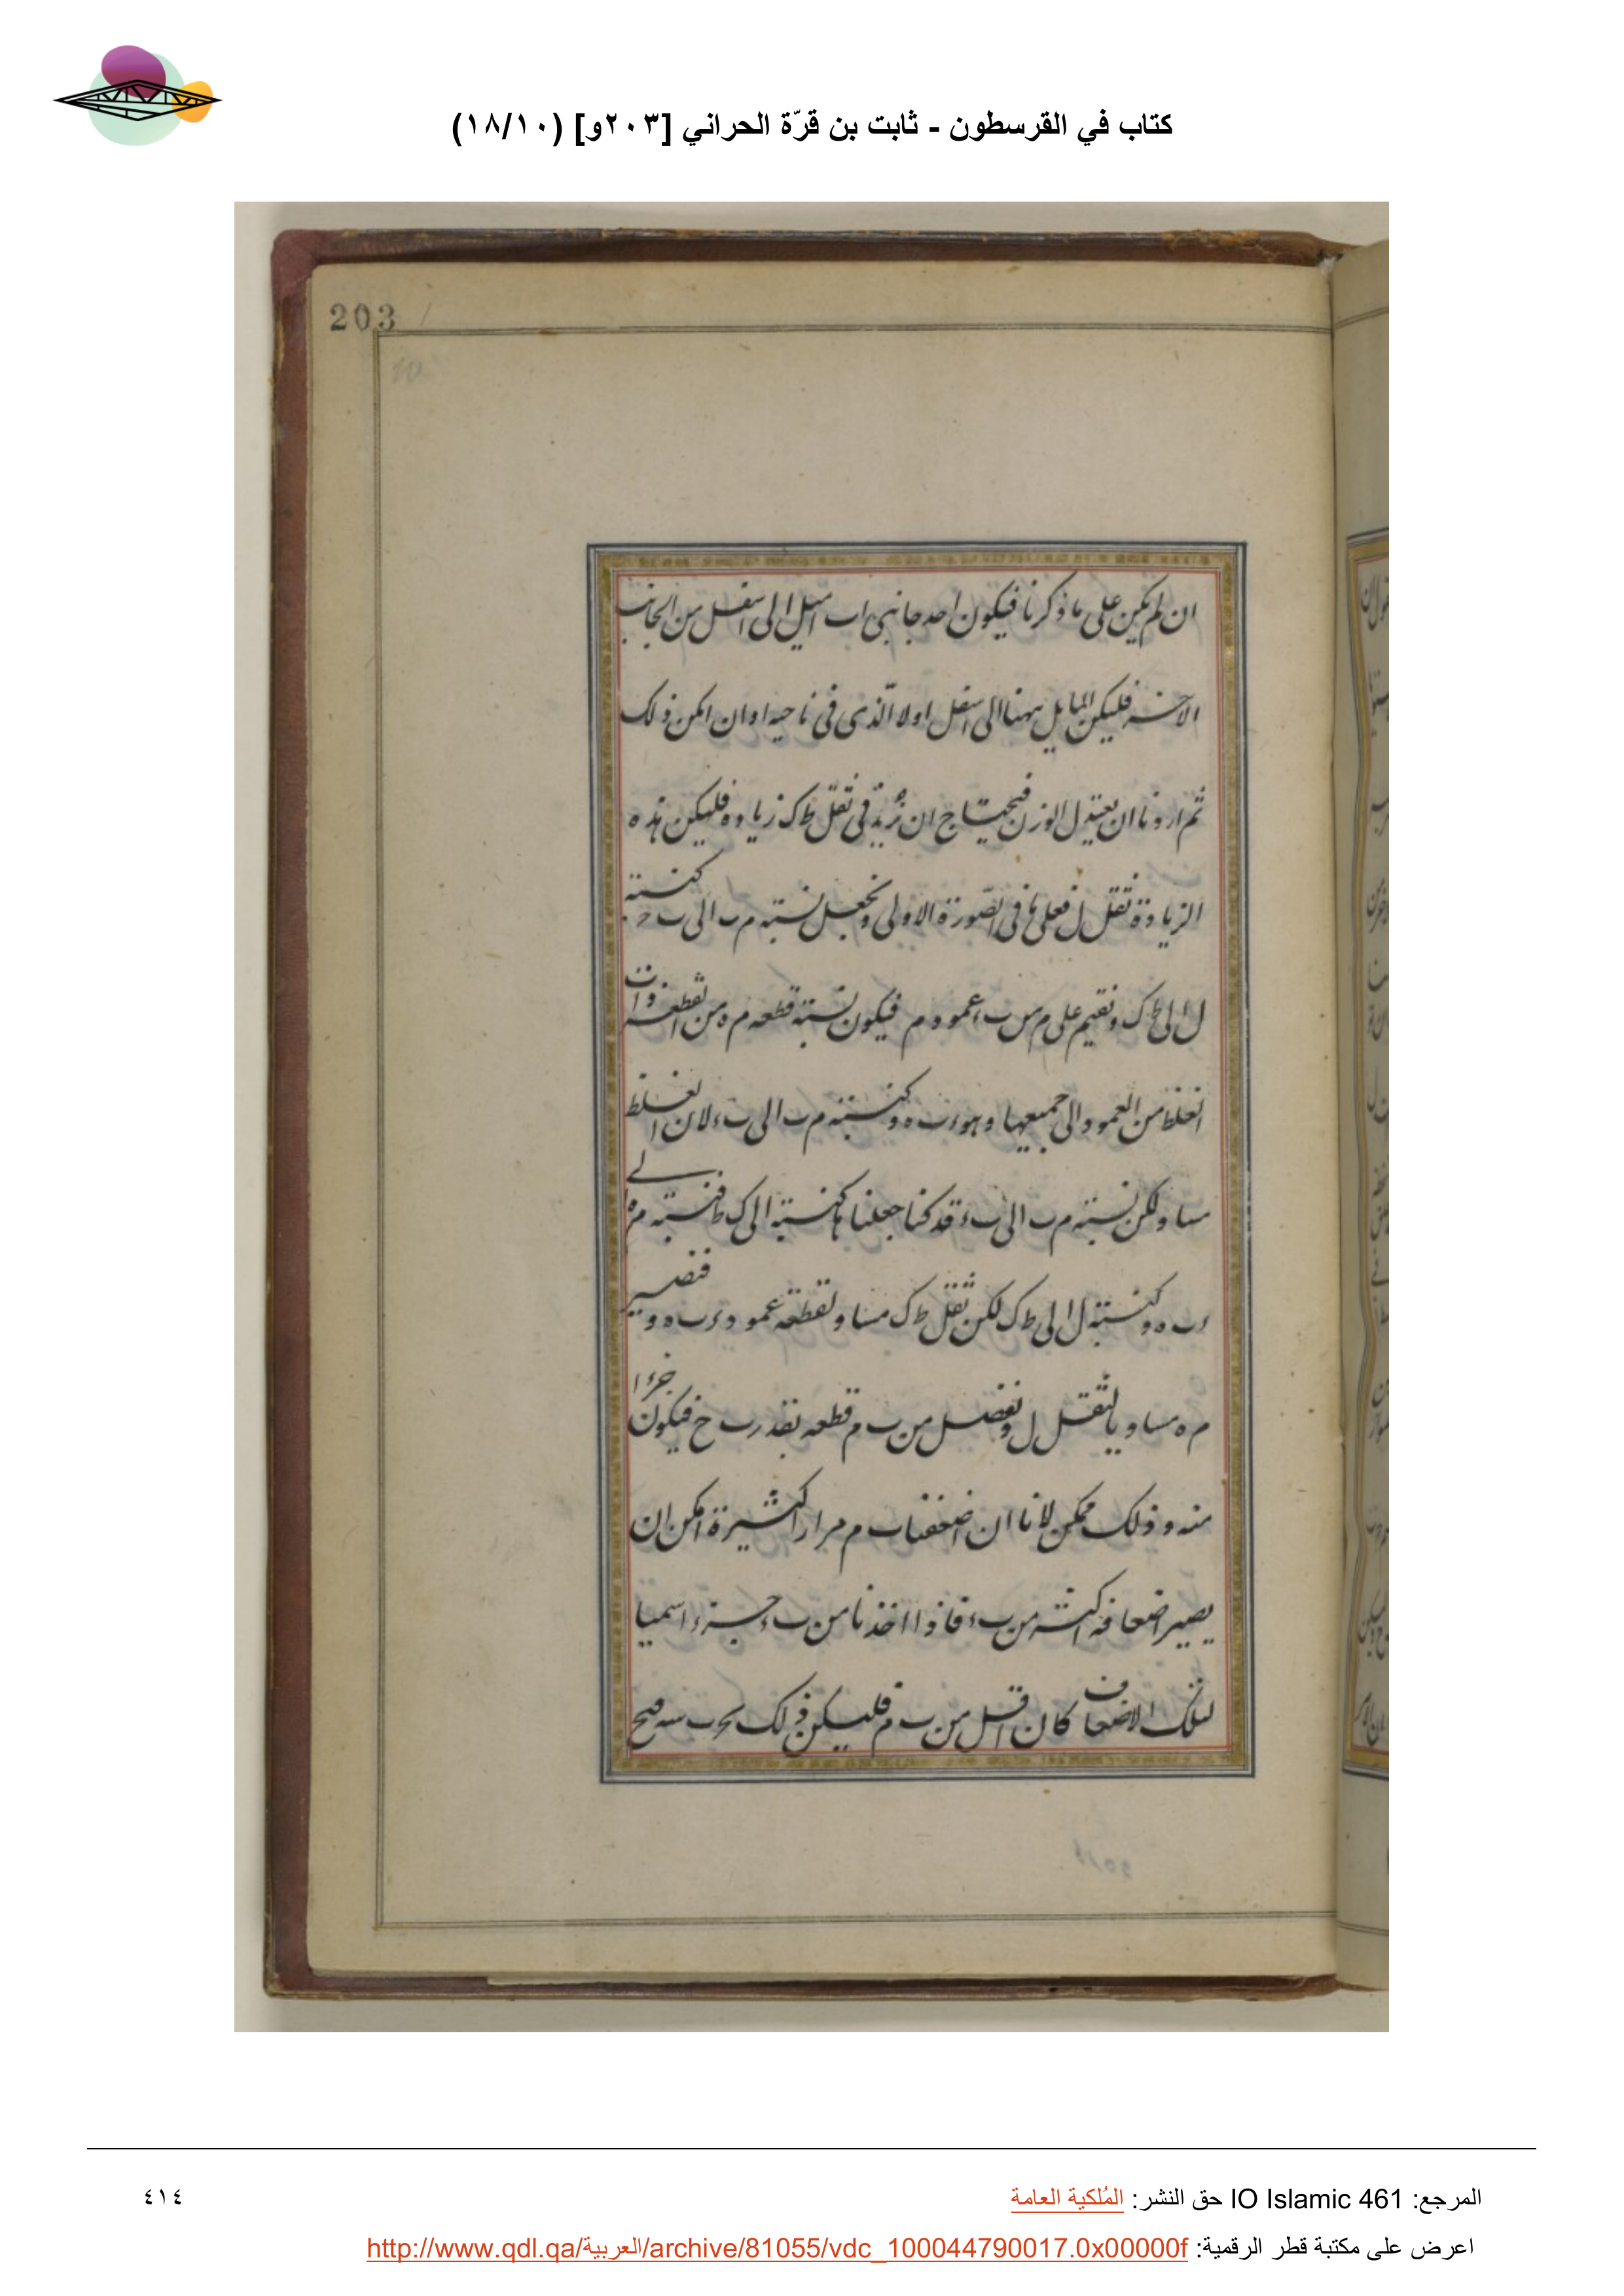 كتاب في القرسطون - ثابت بن قرّة الحراني [٢٠٣و] (١٨/١٠)
203
ان لم يكن على ما ذكرنا فيكون احد جانبى اب اميل الى اسفل من الجانب
الاخر فليكن المايل ههنا الى اسفل اولا الذى فى ناحيه ا وان امكن ذلك
ثم اردنا ان يعتدل الوزن فيحتاج ان نزيد فى ثقل ط ك زياده فليكن هذه
الزيادة ثقل ل فعلى ما فى الصّورة الاولى ونجعل نسبته م ب الى ب كنسبته
ل الى ط ك ونقيم على م من ب عمود م فيكون نسبته قطعه م ه من القطعه ذات
الغلظ من العمود الى جميعها وهو كنسبته م ب الى ب لان الغلظ
مساو لكن نسبته م ب الى ب قد كنا جعلناها كنسبته ل الى ك ط فنسبته م ه
كنسبته ل الى ط ك لكن ثقل ط ك مساو لقطعه عمود فتصير
م ه مساويا لثقل ل ونفضل من ب م قطعه بقدر ب خ فيكون جزءا
منه وذلك ممكن لانا ان اضعفنا ب م مرارا كثيرة امكن ان
يصير اضعافه اكثر من ب فاذا اخذنا من ب جزءا سميا
لتلك الاضعاف كان اقل من ب م فليكن ذلك
المرجع: IO Islamic 461 حق النشر: المُلكية العامة
٤١٤
اعرض على مكتبة قطر الرقمية: http://www.qdl.qa/العربية/archive/81055/vdc_100044790017.0x00000f